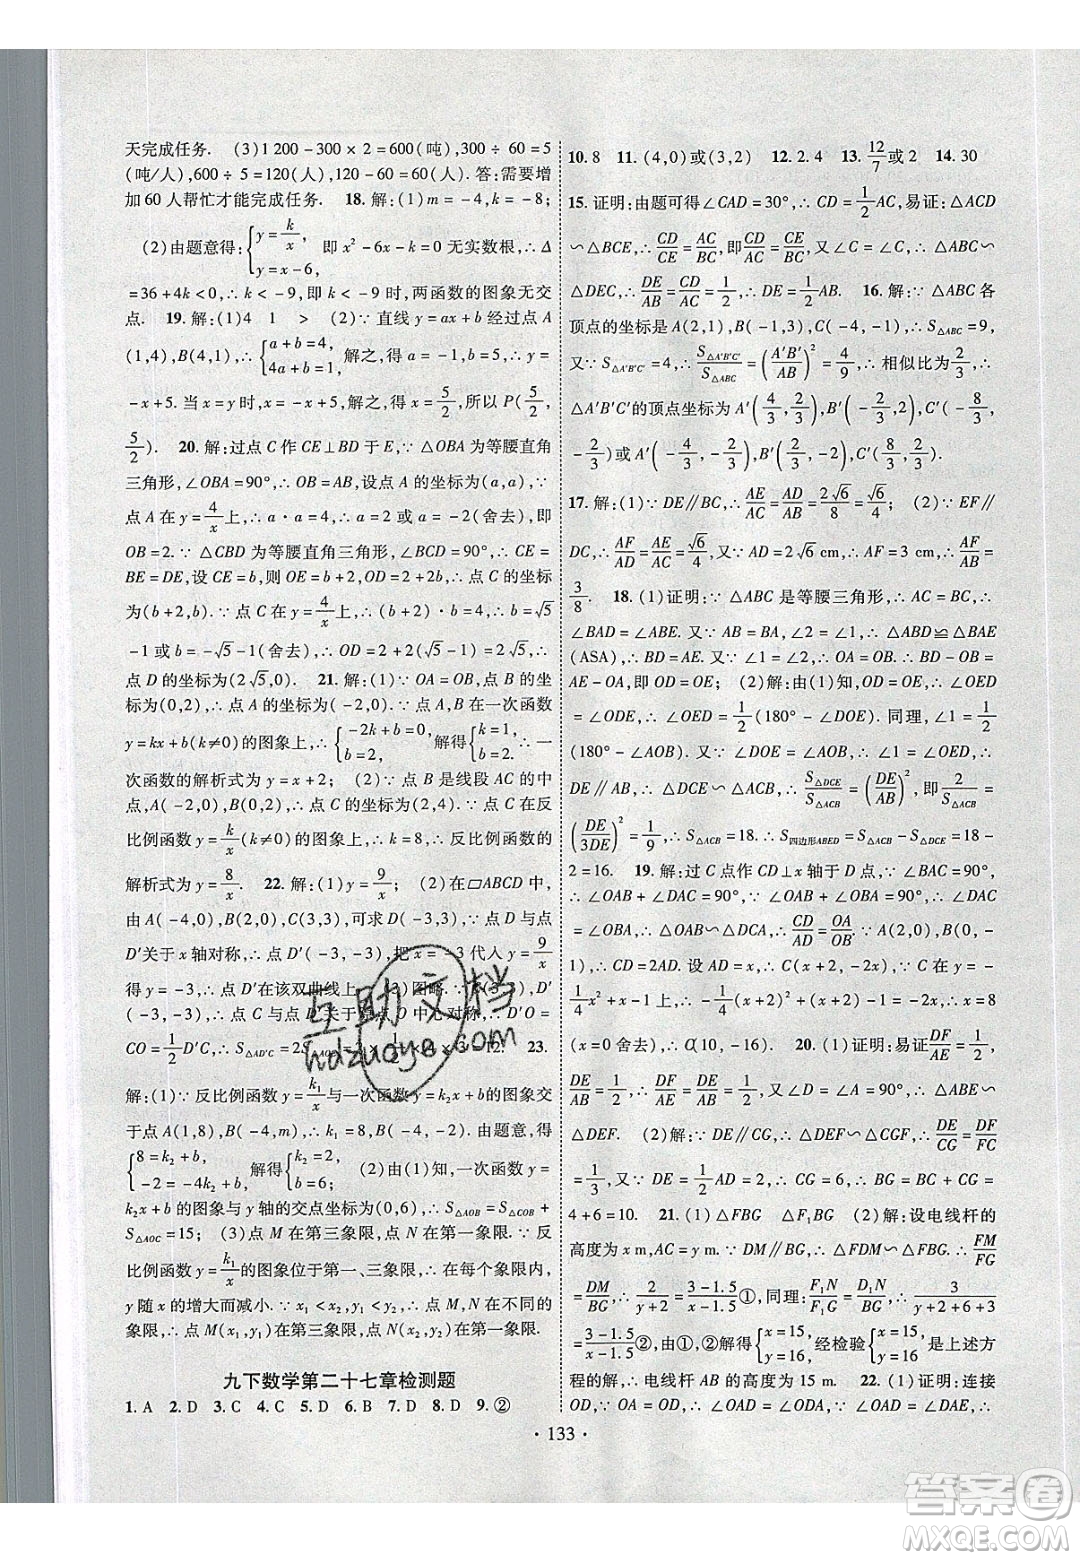 天完成任务. (3)1 200-300×2=600(吨),300÷60=5
(吨/人),600÷5=120(人),120-60=60(人).答:需要增
加60人帮忙才能完成任务. 18.解:(1)m=-4,k=-8;
(2)由题意得:{y=k/x, y=x-6, 即x²-6x-k=0无实数根,∴Δ
=36+4k<0,∴k<-9,即k<-9时,两函数的图象无交
点. 19.解:(1)4 1 > (2)∵直线y=ax+b经过点A
(1,4),B(4,1),∴{a+b=4, 4a+b=1, 解之,得a=-1,b=5,∴y=
-x+5.当x=y时,x=-x+5,解得x=5/2,所以P(5/2,
5/2). 20.解:过点C作CE⊥BD于E,∵△OBA为等腰直角
三角形,∠OBA=90°,∴OB=AB,设点A的坐标(a,a),∵
点A在y=4/x上,∴a·a=4,∴a=2或a=-2(舍去),即
OB=2.∵△CBD为等腰直角三角形,∠BCD=90°,∴CE=
BE=DE,设CE=b,则OE=b+2,OD=2+2b,∴点C的坐标
为(b+2,b),∵点C在y=4/x上,∴(b+2)·b=4,∴b=√5
-1或b=-√5-1(舍去),∴OD=2+2(√5-1)=2√5,∴
点D的坐标为(2√5,0). 21.解:(1)∵OA=OB,点B的坐标
为(0,2),∴点A的坐标为(-2,0),∵点A,B在一次函数
y=kx+b(k≠0)的图象上,∴{-2k+b=0, b=2, 解得{k=1, b=2, ∴一
次函数的解析式为y=x+2; (2)∵点B是线段AC的中
点,A(-2,0),B(0,2),∴点C的坐标为(2,4),∵点C在反
比例函数y=k/x(k≠0)的图象上,∴k=8,∴反比例函数的
解析式为y=8/x. 22.解:(1)y=9/x (2)在▱ABCD中,
由A(-4,0),B(2,0),C(3,3),可求D(-3,3),∵点D与点
D′关于x轴对称,∴点D′(-3,-3),把x=-3代入y=9/x
得y=-3,∴点D′在该双曲线上 (3)图略.∵C(3,3),D′
(-3,-3),∴点C与点D′关于原点O中心对称,∴D′O=
CO=1/2D′C,∴S△AD′C=2S 1/2×4×3=12. 23.
解:(1)∵反比例函数y=k₁/x与一次函数y=k₂x+b的图象交
于点A(1,8),B(-4,m),∴k₁=8,m=-2,由题意,得
{8=k₂+b, -2=-4k₂+b, 解得{k₂=2, b=6; (2)由(1)知,一次函数y=
k₂x+b的图象与y轴的交点坐标为(0,6),∴S△AOB=S△COB+
S△AOC=15; (3)点M在第三象限,点N在第一象限.∵反
比例函数y=k₁/x的图象位于第一、三象限,∴在每个象限内,
y随x的增大而减小.∵x₁<x₂,y₁<y₂,∴点M,N在不同的
象限,∴点M(x₁,y₁)在第三象限,点N(x₂,y₂)在第一象限.
九下数学第二十七章检测题
1.A 2.D 3.C 4.C 5.D 6.B 7.D 8.D 9.②
10.8 11.(4,0)或(3,2) 12.2.4 13.12/7或2 14.30
15.证明:由题可得∠CAD=30°,∴CD=1/2AC,易证:△ACD
∽△BCE,∴CD/CE=AC/BC,即CD/AC=CE/BC,又∠C=∠C,∴△ABC∽
△DEC,∴DE/AB=CD/AC=1/2,∴DE=1/2AB. 16.解:∵△ABC各
顶点的坐标是A(2,1),B(-1,3),C(-4,-1),∴S△ABC=9,
又∵S△A′B′C′=4,∴S△A′B′C′/S△ABC=(A′B′/AB)²=4/9,∴相似比为2/3,∴
△A′B′C′的顶点坐标为A′(4/3,2/3),B′(-2/3,2),C′(-8/3,
-2/3)或A′(-4/3,-2/3),B′(2/3,-2),C′(8/3,2/3).
17.解:(1)∵DE∥BC,∴AE/AC=AD/AB=2√6/8=√6/4; (2)∵EF∥
DC,∴AF/AD=AE/AC=√6/4,又∵AD=2√6 cm,∴AF=3 cm,AF/AB=
3/8. 18.(1)证明:∵△ABC是等腰三角形,∴AC=BC,∴
∠BAD=∠ABE.又∵AB=BA,∠1=∠2,∴△ABD≌△BAE
(ASA),∴BD=AE.又∵∠1=∠2,∴OA=OB.∴BD-OB=
AE-OA,即OD=OE; (2)解:由(1)知,OD=OE,∴∠OED
=∠ODE,∴∠OED=1/2(180°-∠DOE).同理,∠1=1/2
(180°-∠AOB).又∵∠DOE=∠AOB,∴∠1=∠OED,∴
DE∥AB,∴△DCE∽△ACB,∴S△DCE/S△ACB=(DE/AB)²,即2/S△ACB=
(DE/3DE)²=1/9,∴S△ACB=18.∴S四边形ABED=S△ACB-S△DCE=18-
2=16. 19.解:过C点作CD⊥x轴于D点,∵∠BAC=90°,
∴∠OAB+∠DAC=90°,∵∠OAB+∠OBA=90°,∴∠OBA
=∠DAC,∴△OAB∽△DCA,∴CD/AD=OA/OB.∵A(2,0),B(0,-
1),∴CD=2AD.设C点的坐标为(x+2,-2x),∵y=-
1/4x²+x-1,∴-1/4(x+2)²+(x+2)-1=-2x,∴x=8
(x=0舍去),∴C(10,-16). 20.(1)证明:易证DF/AE=
DE/AB=EF/BE=1/2,∴ ∴△ABE∽
△DEF. (2)解:∵DE∥CG,∴△DEF∽△CGF,∴DE/CG=DF/FC
=1/3,又∵DE=2,AB=BC=4,∴CG=6,∴BG=BC+CG=
4+6=10. 21.(1)△FBG △F₁BG (2)解:设电线杆的
高度为x m,AC=y m.∵DM∥BG,∴△FDM∽△FBG,∴FM/FG
=DM/BG,∴2/(y+2)=(3-1.5)/(x-1.5)①,同理:F₁N/F₁G=D₁N/BG,∴3/(y+2+6+3)
=(3-1.5)/(x-1.5)②,由①,②解得{x=15, y=16, 经检验{x=15, y=16, 是上述方
程的解,∴电线杆的高度为15 m. 22.(1)证明:连接
OD,∵OA=OD,∴∠OAD=∠ODA,∵∠OAD=∠DAE,∴
·133·
互助文档
hdzuoye.com
答案圈
MXQE.COM